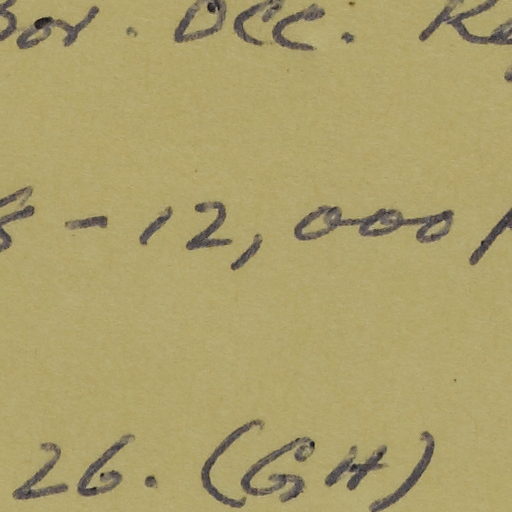 Bor. Occ.
- 12,000
26. (GH)